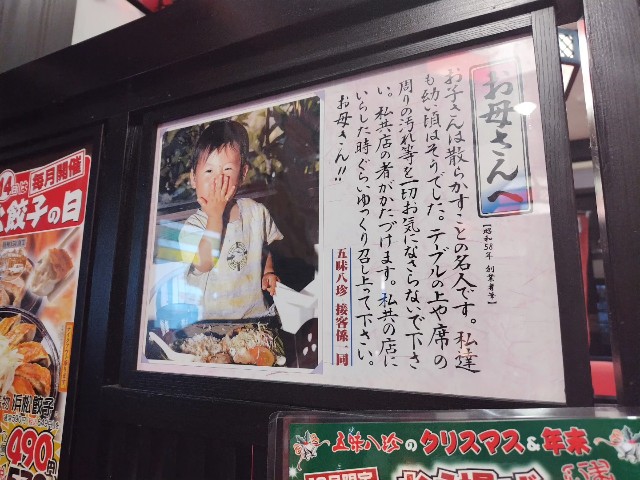 お母さんへ
【昭和58年 創業者筆】
お子さんは散らかすことの名人です。私達
も幼い頃はそうでした。テーブルの上や席の
周りの汚れ等を一切お気になさらないで下さ
い。私共店の者がかたづけます。私共の店に
いらした時ぐらいゆっくり召し上って下さい。
お母さん!!
五味八珍 接客係一同
毎月開催
餃子の日
浜松餃子
490円
五味八珍のクリスマス&年末